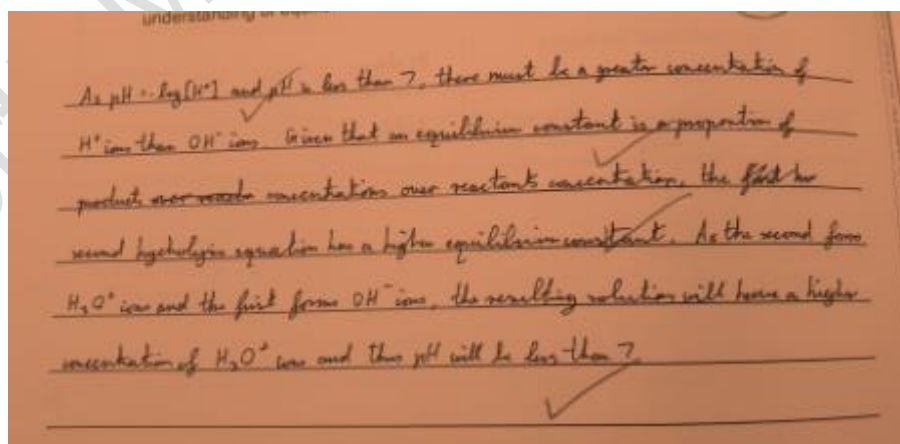 understanding of equili
As pH = -log[H⁺] and pH is less than 7, there must be a greater concentration of
H⁺ ions than OH⁻ ions. Given that an equilibrium constant is a proportion of
product over concentrations over reactants concentration, the first has
second hydrolysis equation has a higher equilibrium constant. As the second forms
H₃O⁺ ions and the first forms OH⁻ ions, the resulting solution will have a higher
concentration of H₃O⁺ ions and thus pH will be less than 7.